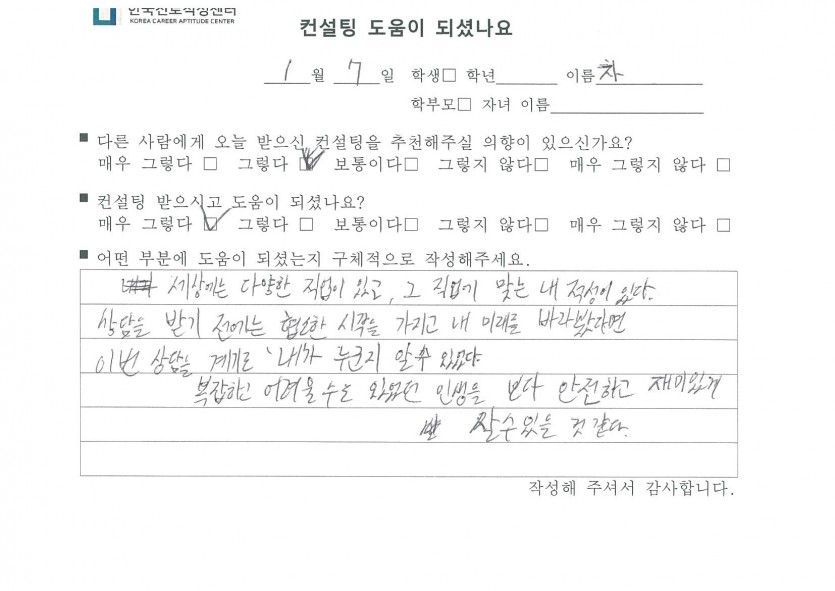 한국진로적성센터
KOREA CAREER APTITUDE CENTER
컨설팅 도움이 되셨나요
1 월 7 일 학생□ 학년 이름 차
학부모□ 자녀 이름
■ 다른 사람에게 오늘 받으신 컨설팅을 추천해주실 의향이 있으신가요?
매우 그렇다 □ 그렇다 ☑ 보통이다□ 그렇지 않다□ 매우 그렇지 않다 □
■ 컨설팅 받으시고 도움이 되셨나요?
매우 그렇다 ☑ 그렇다 □ 보통이다□ 그렇지 않다□ 매우 그렇지 않다 □
■ 어떤 부분에 도움이 되셨는지 구체적으로 작성해주세요.
세상에는 다양한 직업이 있고, 그 직업에 맞는 내 적성이 있다.
상담을 받기 전에는 협소한 시각을 가지고 내 미래를 바라봤다면
이번 상담을 계기로 '내가 누군지 알 수 있었다.
복잡하고 어려울 수도 있었던 인생을 보다 안전하고 재미있게
살 수 있을 것 같다.
작성해 주셔서 감사합니다.